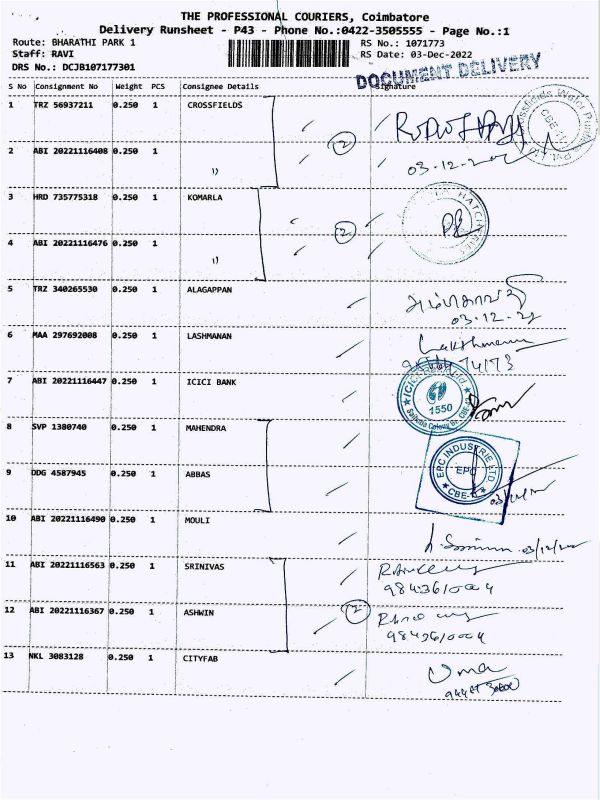 THE PROFESSIONAL COURIERS, Coimbatore
Delivery Runsheet - P43 - Phone No.:0422-3505555 - Page No.:1
Route: BHARATHI PARK 1 RS No.: 1071773
Staff: RAVI RS Date: 03-Dec-2022
DRS No.: DCJB107177301
DOCUMENT DELIVERY
S No Consignment No Weight PCS Consignee Details Signature
1 TRZ 56937211 0.250 1 CROSSFIELDS
2 ABI 20221116408 0.250 1 ))
3 HRD 735775318 0.250 1 KOMARLA
4 ABI 20221116476 0.250 1 ))
5 TRZ 340265530 0.250 1 ALAGAPPAN
03-12-22
6 MAA 297692008 0.250 1 LASHMANAN
Lakshmanan
7 ABI 20221116447 0.250 1 ICICI BANK
1550
8 SVP 1380740 0.250 1 MAHENDRA
EPC INDUSTRIE LTD
EPC
9 DDG 4587945 0.250 1 ABBAS
10 ABI 20221116490 0.250 1 MOULI
11 ABI 20221116563 0.250 1 SRINIVAS
9843610004
12 ABI 20221116367 0.250 1 ASHWIN
9843610004
13 NKL 3083128 0.250 1 CITYFAB
Uma